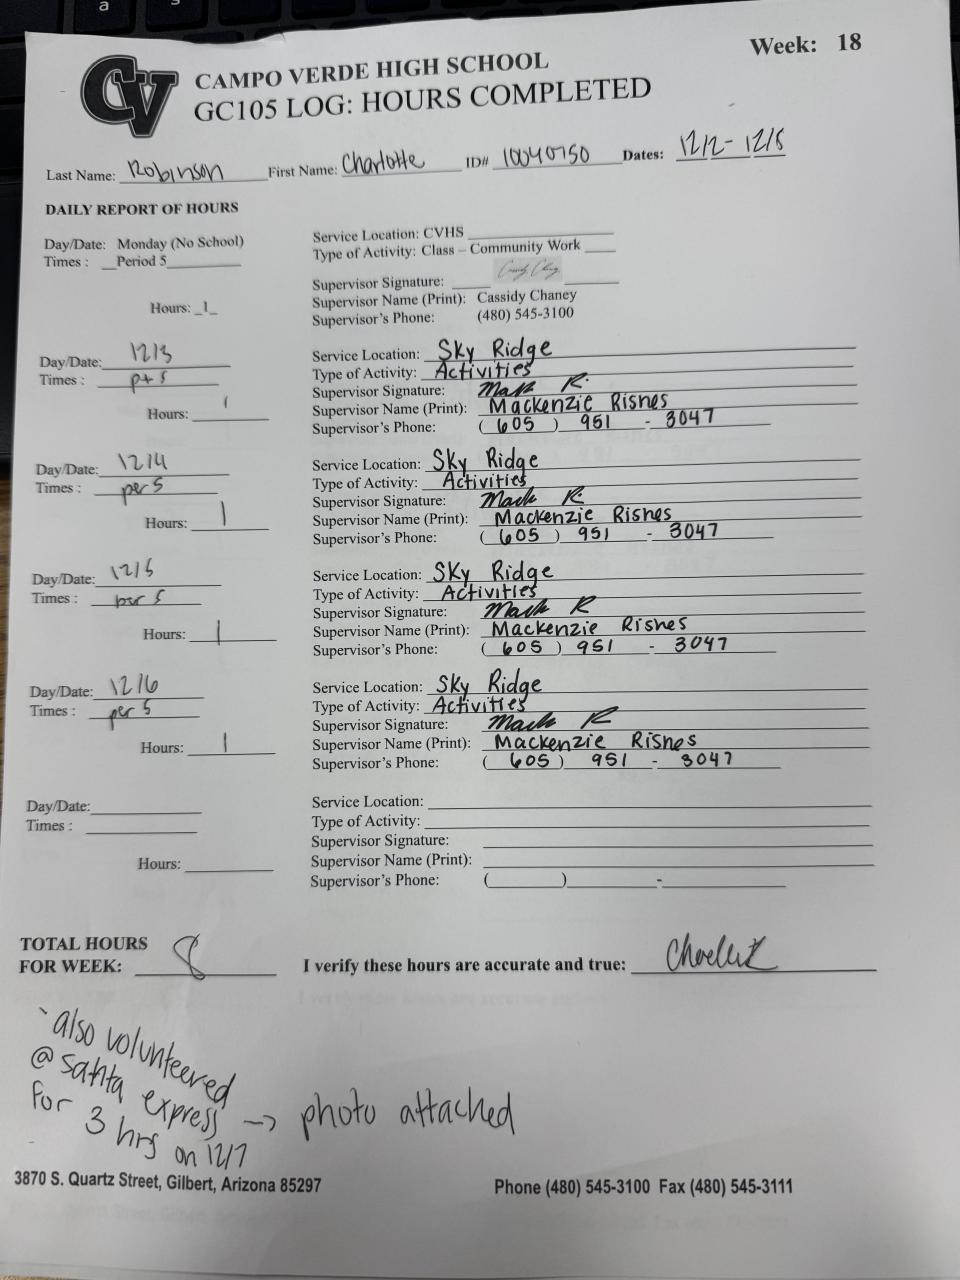 a s
Week: 18
CV
CAMPO VERDE HIGH SCHOOL
GC105 LOG: HOURS COMPLETED
Last Name: Robinson First Name: Charlotte ID# 10040750 Dates: 12/2 - 12/8
DAILY REPORT OF HOURS
Day/Date: Monday (No School)
Times : __Period 5
Hours: _1_
Service Location: CVHS
Type of Activity: Class – Community Work
Supervisor Signature:
Supervisor Name (Print): Cassidy Chaney
Supervisor's Phone: (480) 545-3100
Day/Date: 12/3
Times :
Hours: 1
Service Location: Sky Ridge
Type of Activity: Activities
Supervisor Signature: Mack R.
Supervisor Name (Print): Mackenzie Risnes
Supervisor's Phone: (605) 951 - 3047
Day/Date: 12/4
Times : per 5
Hours: 1
Service Location: Sky Ridge
Type of Activity: Activities
Supervisor Signature: Mack R.
Supervisor Name (Print): Mackenzie Risnes
Supervisor's Phone: (605) 951 - 3047
Day/Date: 12/5
Times : per 5
Hours: 1
Service Location: Sky Ridge
Type of Activity: Activities
Supervisor Signature: Mack R
Supervisor Name (Print): Mackenzie Risnes
Supervisor's Phone: (605) 951 - 3047
Day/Date: 12/6
Times : per 5
Hours: 1
Service Location: Sky Ridge
Type of Activity: Activities
Supervisor Signature: Mack R
Supervisor Name (Print): Mackenzie Risnes
Supervisor's Phone: (605) 951 - 3047
Day/Date:
Times :
Hours:
Service Location:
Type of Activity:
Supervisor Signature:
Supervisor Name (Print):
Supervisor's Phone: ( ) -
TOTAL HOURS
FOR WEEK: 8
I verify these hours are accurate and true:
also volunteered
@ santa express
for 3 hrs on 12/7
-> photo attached
3870 S. Quartz Street, Gilbert, Arizona 85297
Phone (480) 545-3100 Fax (480) 545-3111